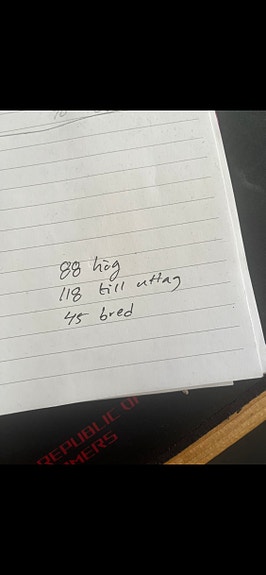 88 hög
118 till uttag
45 bred
REPUBLIC OF
MERS